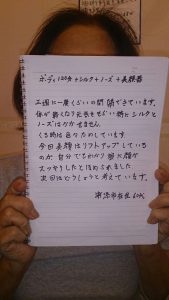 ボディ120分+シルク+ノーズ+美顔器
二週に一度くらいの間隔できています。
体が軽くなり元気をもらい特にシルクと
ノーズはかかせません。
くる時は色々たのしています
今回美顔はリフトアップしている
のが自分でもわかり 顔が
スッキリしたとほめられました
次回はどうしようと考えています。
市在住 60代